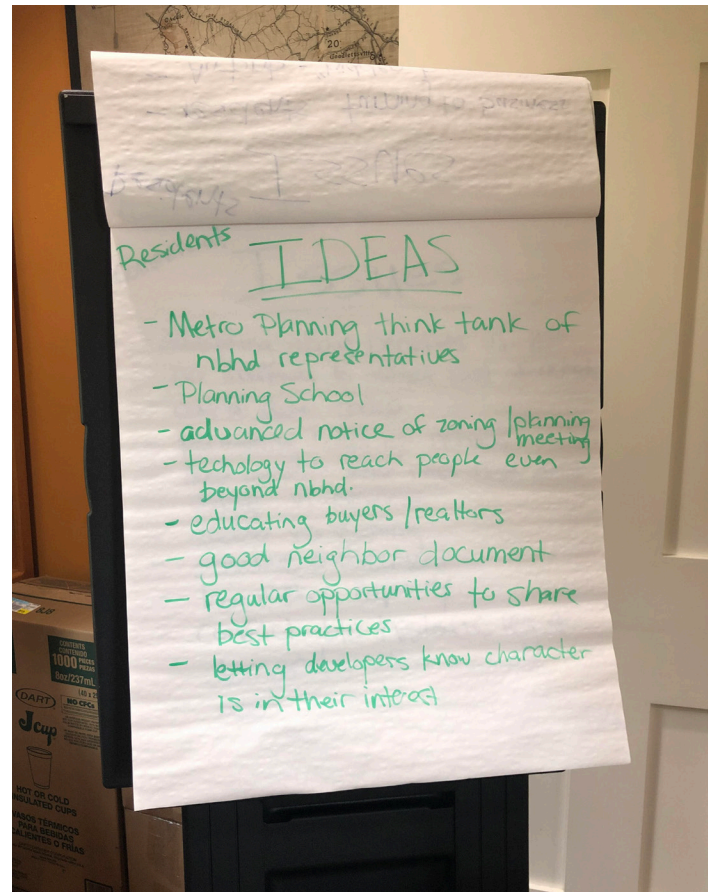 20
Residents
IDEAS
- Metro Planning think tank of
nbhd representatives
- Planning School
- advanced notice of zoning/planning
meeting
- techology to reach people even
beyond nbhd.
- educating buyers/realtors
- good neighbor document
- regular opportunities to share
best practices
- letting developers know character
is in their interest
CONTENTS
CONTENIDO
1000 PIECES
PIEZAS
8oz/237mL
DART
NO CFCs
J cup
HOT OR COLD
INSULATED CUPS
VASOS TÉRMICOS
PARA BEBIDAS
CALIENTES O FRÍAS